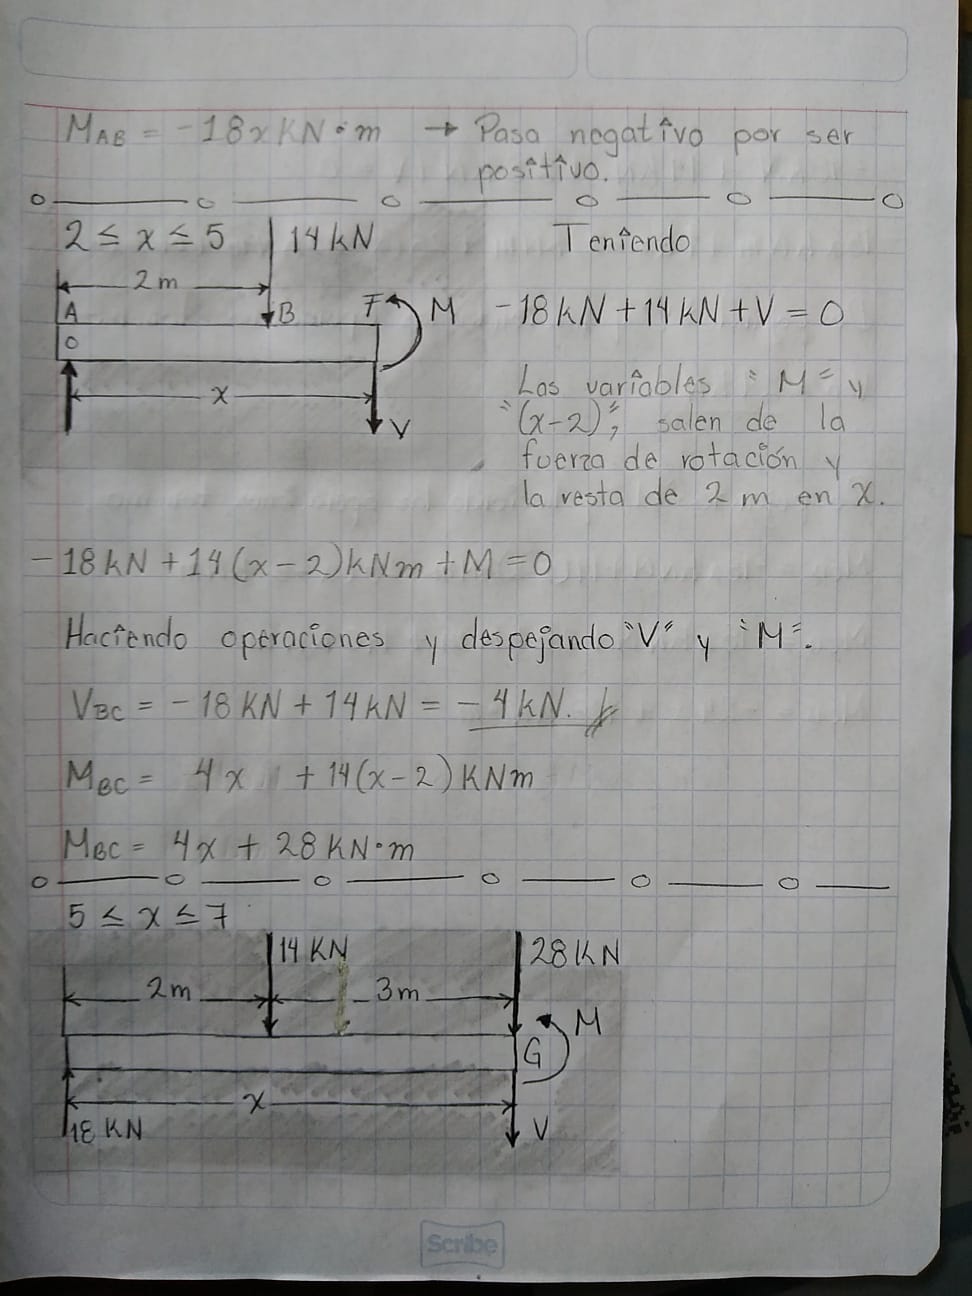 MAB = -18x KN·m → Pasa negativo por ser
positivo.
2 ≤ x ≤ 5 14 kN Teniendo
2m
A B F M -18 kN + 14 kN + V = 0
O
Las variables "M" y
x "(x-2)", salen de la
V fuerza de rotación y
la resta de 2 m en x.
-18 kN + 14(x-2) kNm + M = 0
Haciendo operaciones y despejando "V" y "M".
VBC = -18 KN + 14 kN = -4 kN.
MBC = 4x + 14(x-2) KNm
MBC = 4x + 28 KN·m
5 ≤ x ≤ 7
14 KN 28 KN
2m 3m
M
G
x
18 KN V
Scribe